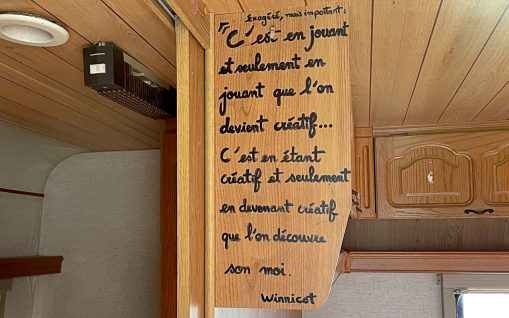 Exagéré, mais important :
"C'est en jouant
et seulement en
jouant que l'on
devient créatif...
C'est en étant
créatif et seulement
en devenant créatif
que l'on découvre
son moi.
Winnicot